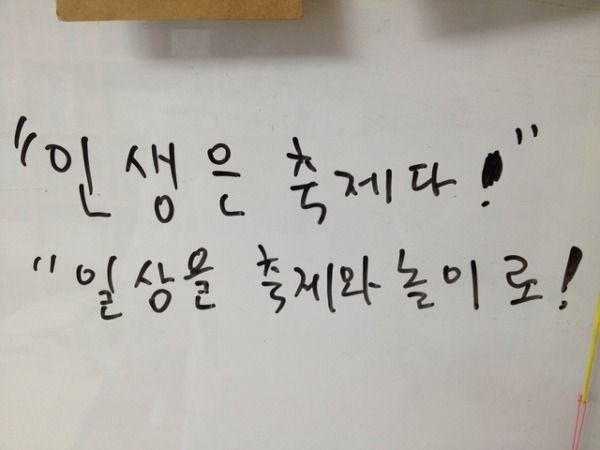 "인생은 축제다!"
"일상을 축제와 놀이로!